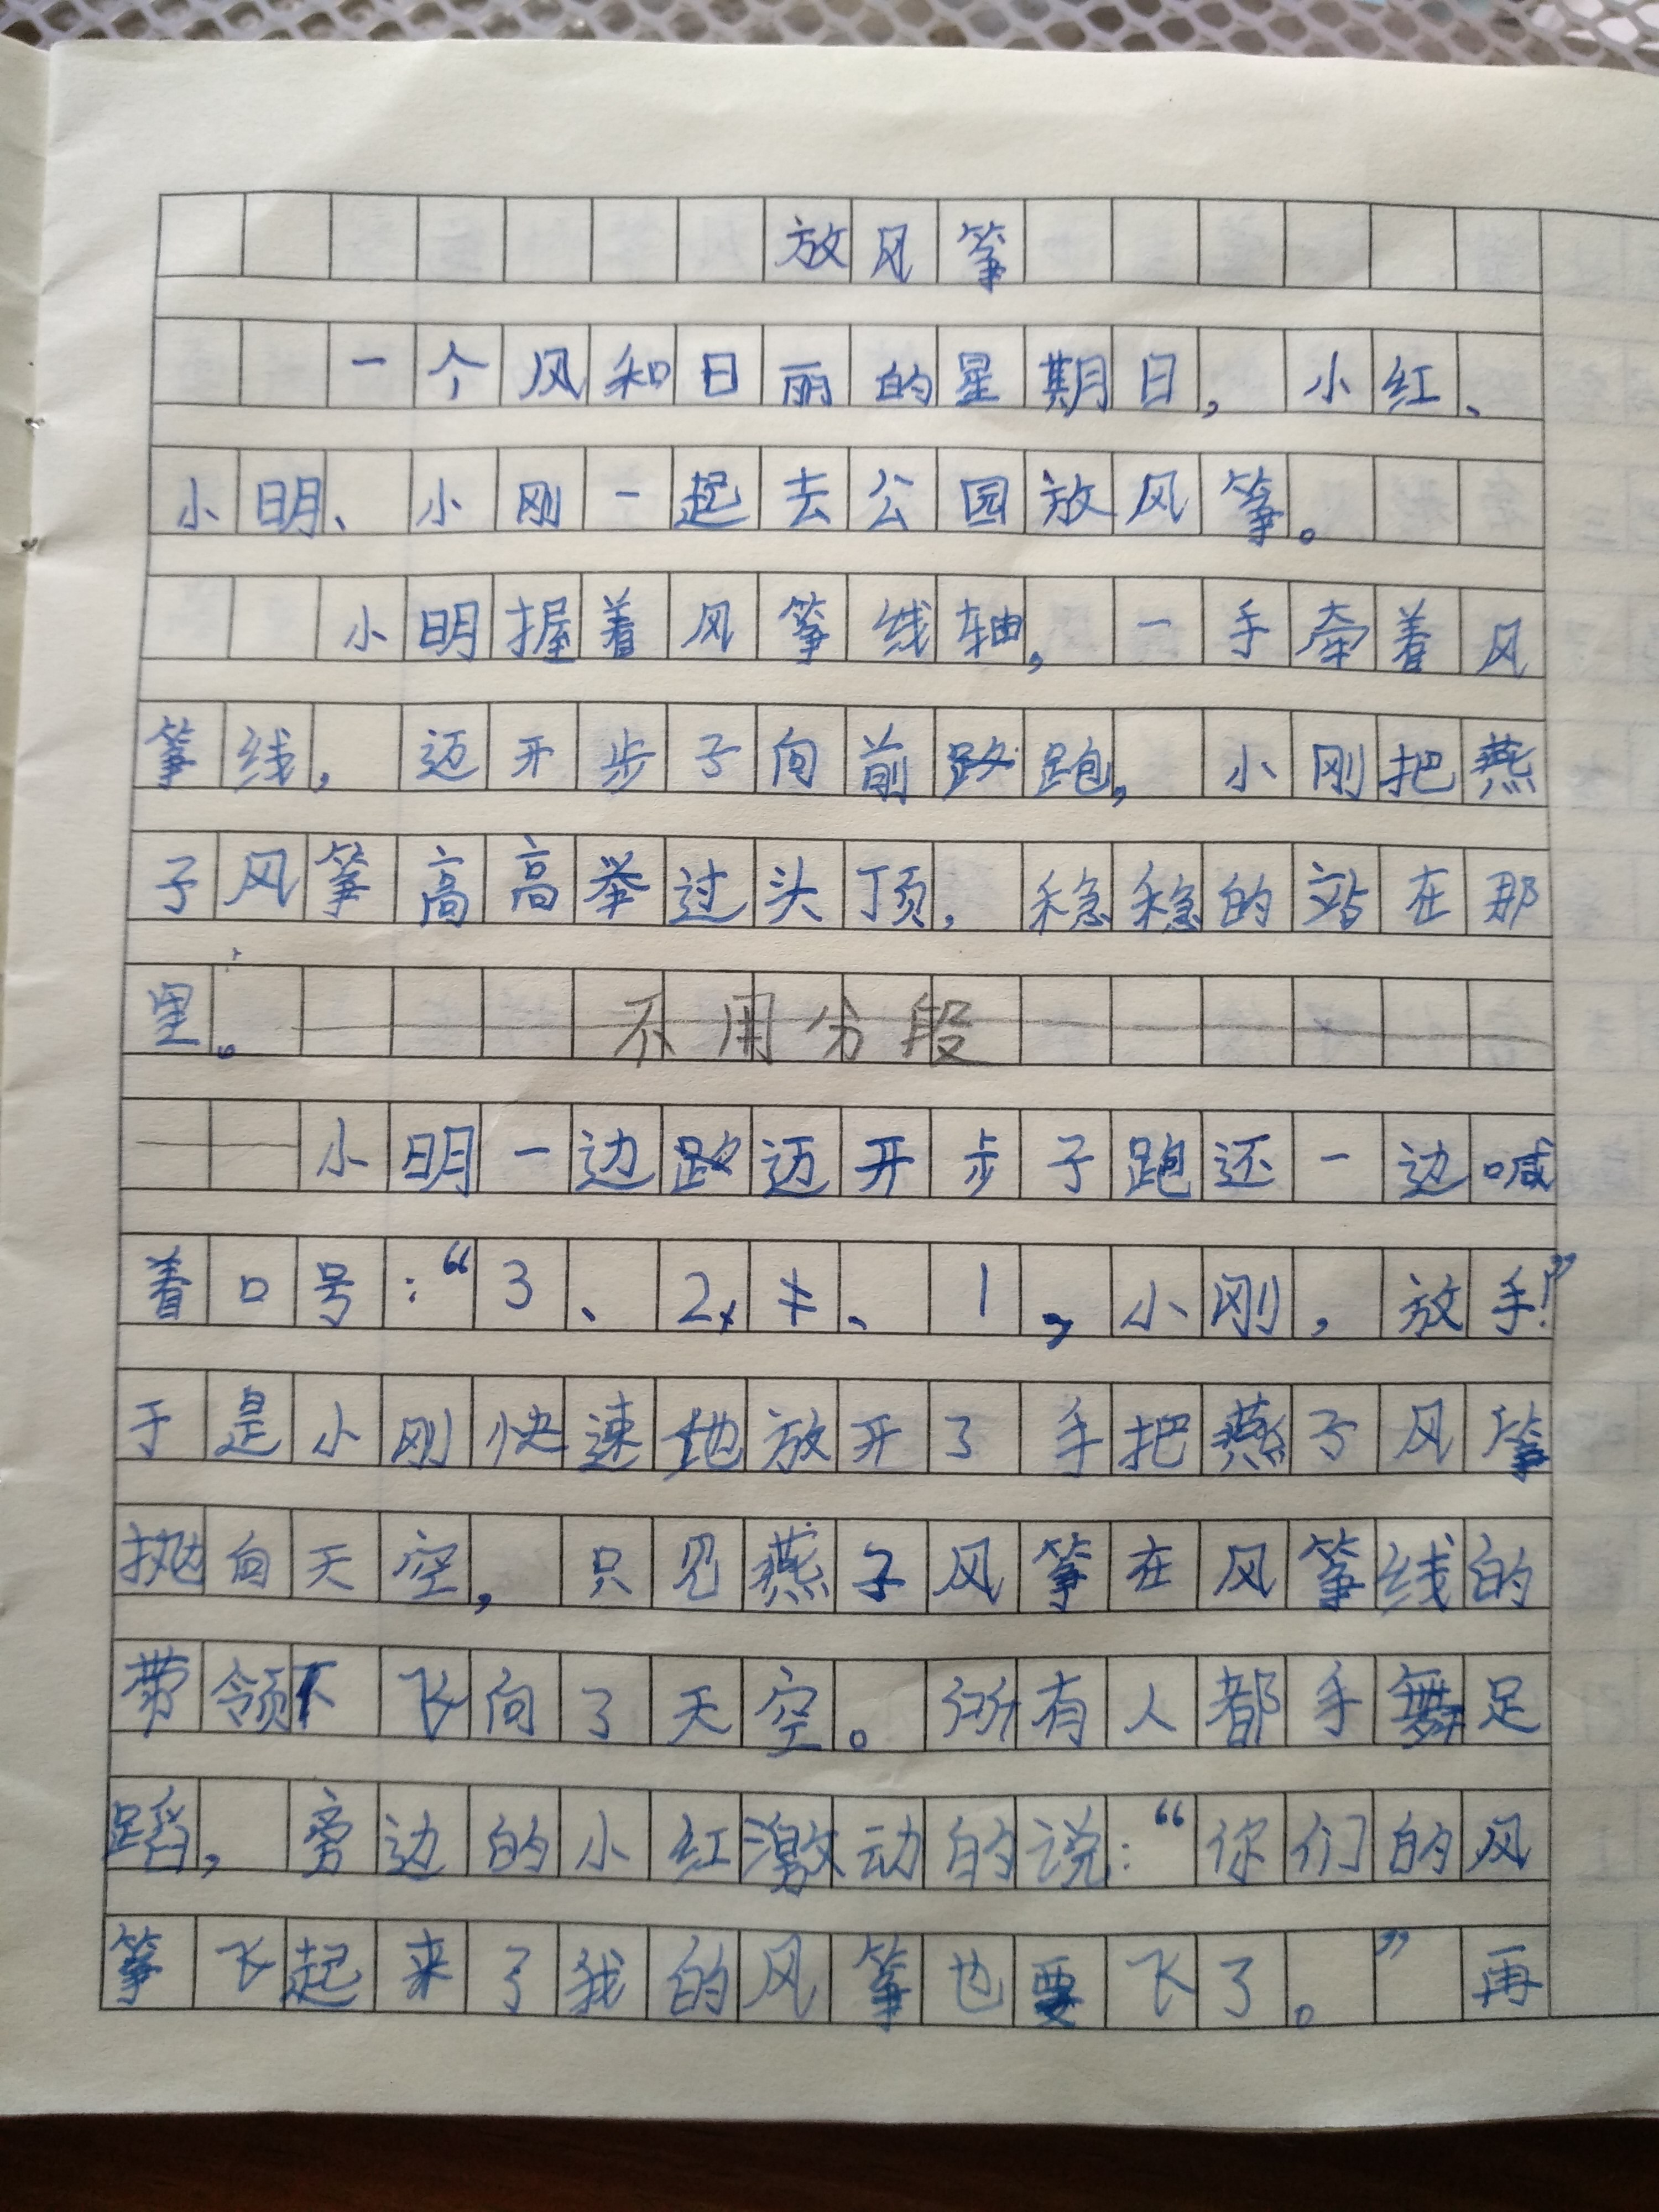 放风筝
一个风和日丽的星期日，小红、
小明、小刚一起去公园放风筝。
小明握着风筝线轴，一手牵着风
筝线，迈开步子向前跑，小刚把燕
子风筝高高举过头顶，稳稳的站在那
里。
不用分段
小明一边迈开步子跑还一边喊
着口号：“3、2、1，小刚，放手！”
于是小刚快速地放开了手把燕子风筝
抛向天空，只见燕子风筝在风筝线的
带领下飞向了天空。所有人都手舞足
蹈，旁边的小红激动的说：“你们的风
筝飞起来了我的风筝也要飞了。”再